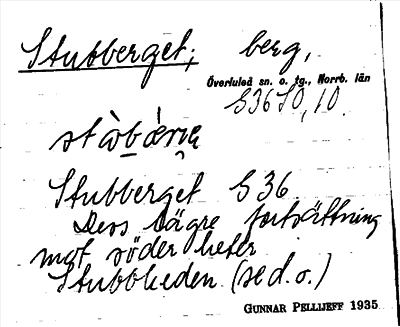 Stubberget; berg,
Överluleå sn. o. tg., Norrb. län
S36SO, 10.
Stubberget S 36.
Dess lägre fortsättning
mot söder heter
Stubbheden. (se d. o.)
GUNNAR PELLIJEFF 1935